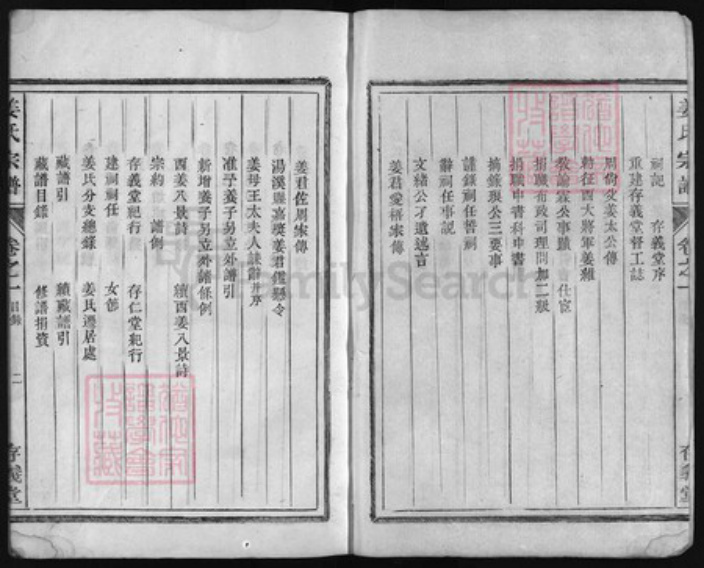 姜氏宗譜
卷之一
存義堂
祠記 存義堂序
重建存義堂督工誌
周尚父姜太公傳
勅征西大將軍姜維
敕諭霖公事蹟 仕宦
捐職布政司理問加二級
捐職中書科中書
摘錄琪公三要事
謹錄祠任督祠
辭祠任事説
文緒公才遺遙言
姜君愛梧家傳
姜君佐周家傳
湯溪縣嘉獎姜君鑑懸令
姜母王太夫人誄辭并序
准予養子另立外譜引
新增養子另立外譜條例
西姜八景詩 續西姜八景詩
宗約 譜例
存義堂紀行 存仁堂紀行
建祠祠任 女德
姜氏分支總錄 姜氏遷居處
藏譜引 續藏譜引
藏譜目錄 修譜捐資
姜氏宗譜
卷之一
目錄
二
存義堂
FamilySearch